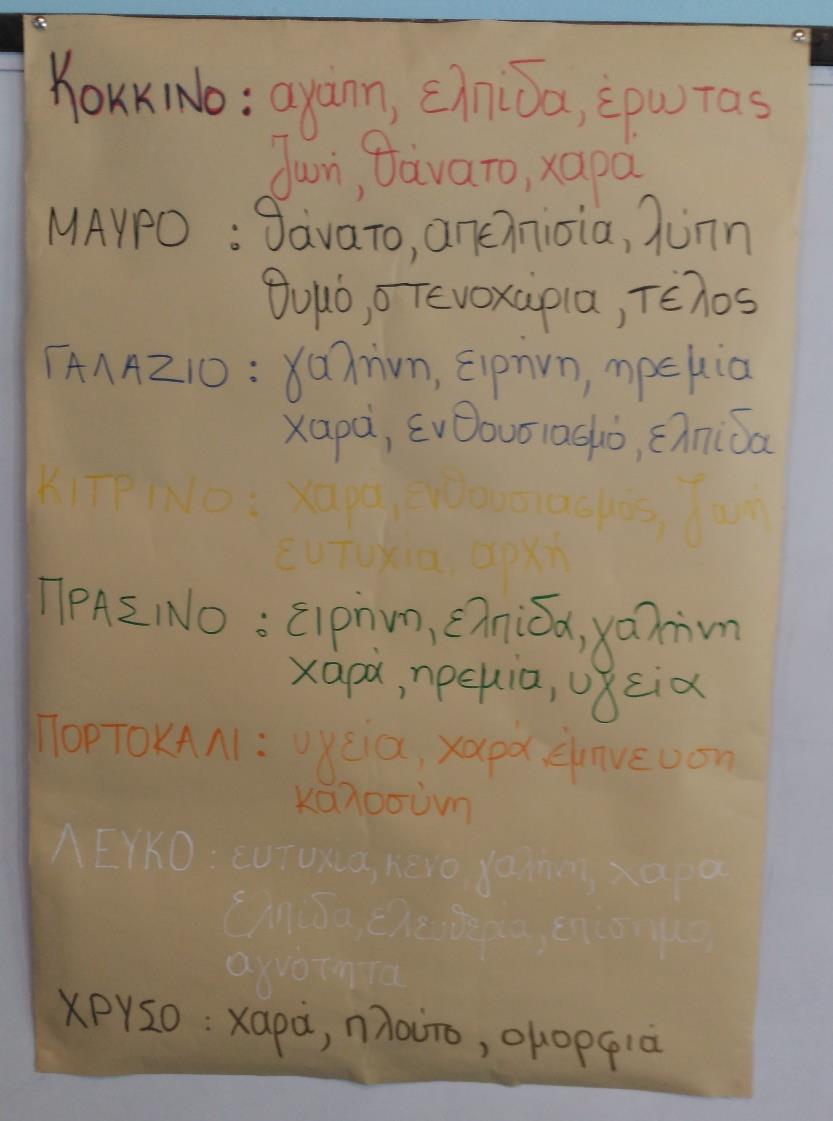 ΚΟΚΚΙΝΟ: αγάπη, ελπίδα, έρωτας
ζωή, θάνατο, χαρά
ΜΑΥΡΟ : θάνατο, απελπισία, λύπη
θυμό, στενοχώρια, τέλος
ΓΑΛΑΖΙΟ : γαλήνη, ειρήνη, ηρεμία
χαρά, ενθουσιασμό, ελπίδα
ΚΙΤΡΙΝΟ: χαρα, ενθουσιασμός, ζωή
ευτυχία, αρχή
ΠΡΑΣΙΝΟ : ειρήνη, ελπίδα, γαλήνη
χαρά, ηρεμία, υγεία
ΠΟΡΤΟΚΑΛΙ : υγεία, χαρά, έμπνευση
καλοσύνη
ΛΕΥΚΟ : ευτυχία, κενο, γαλήνη, χαρά
ελπίδα, ελευθερία, επίσημο,
αγνότητα
ΧΡΥΣΟ : χαρά, πλούτο, ομορφιά